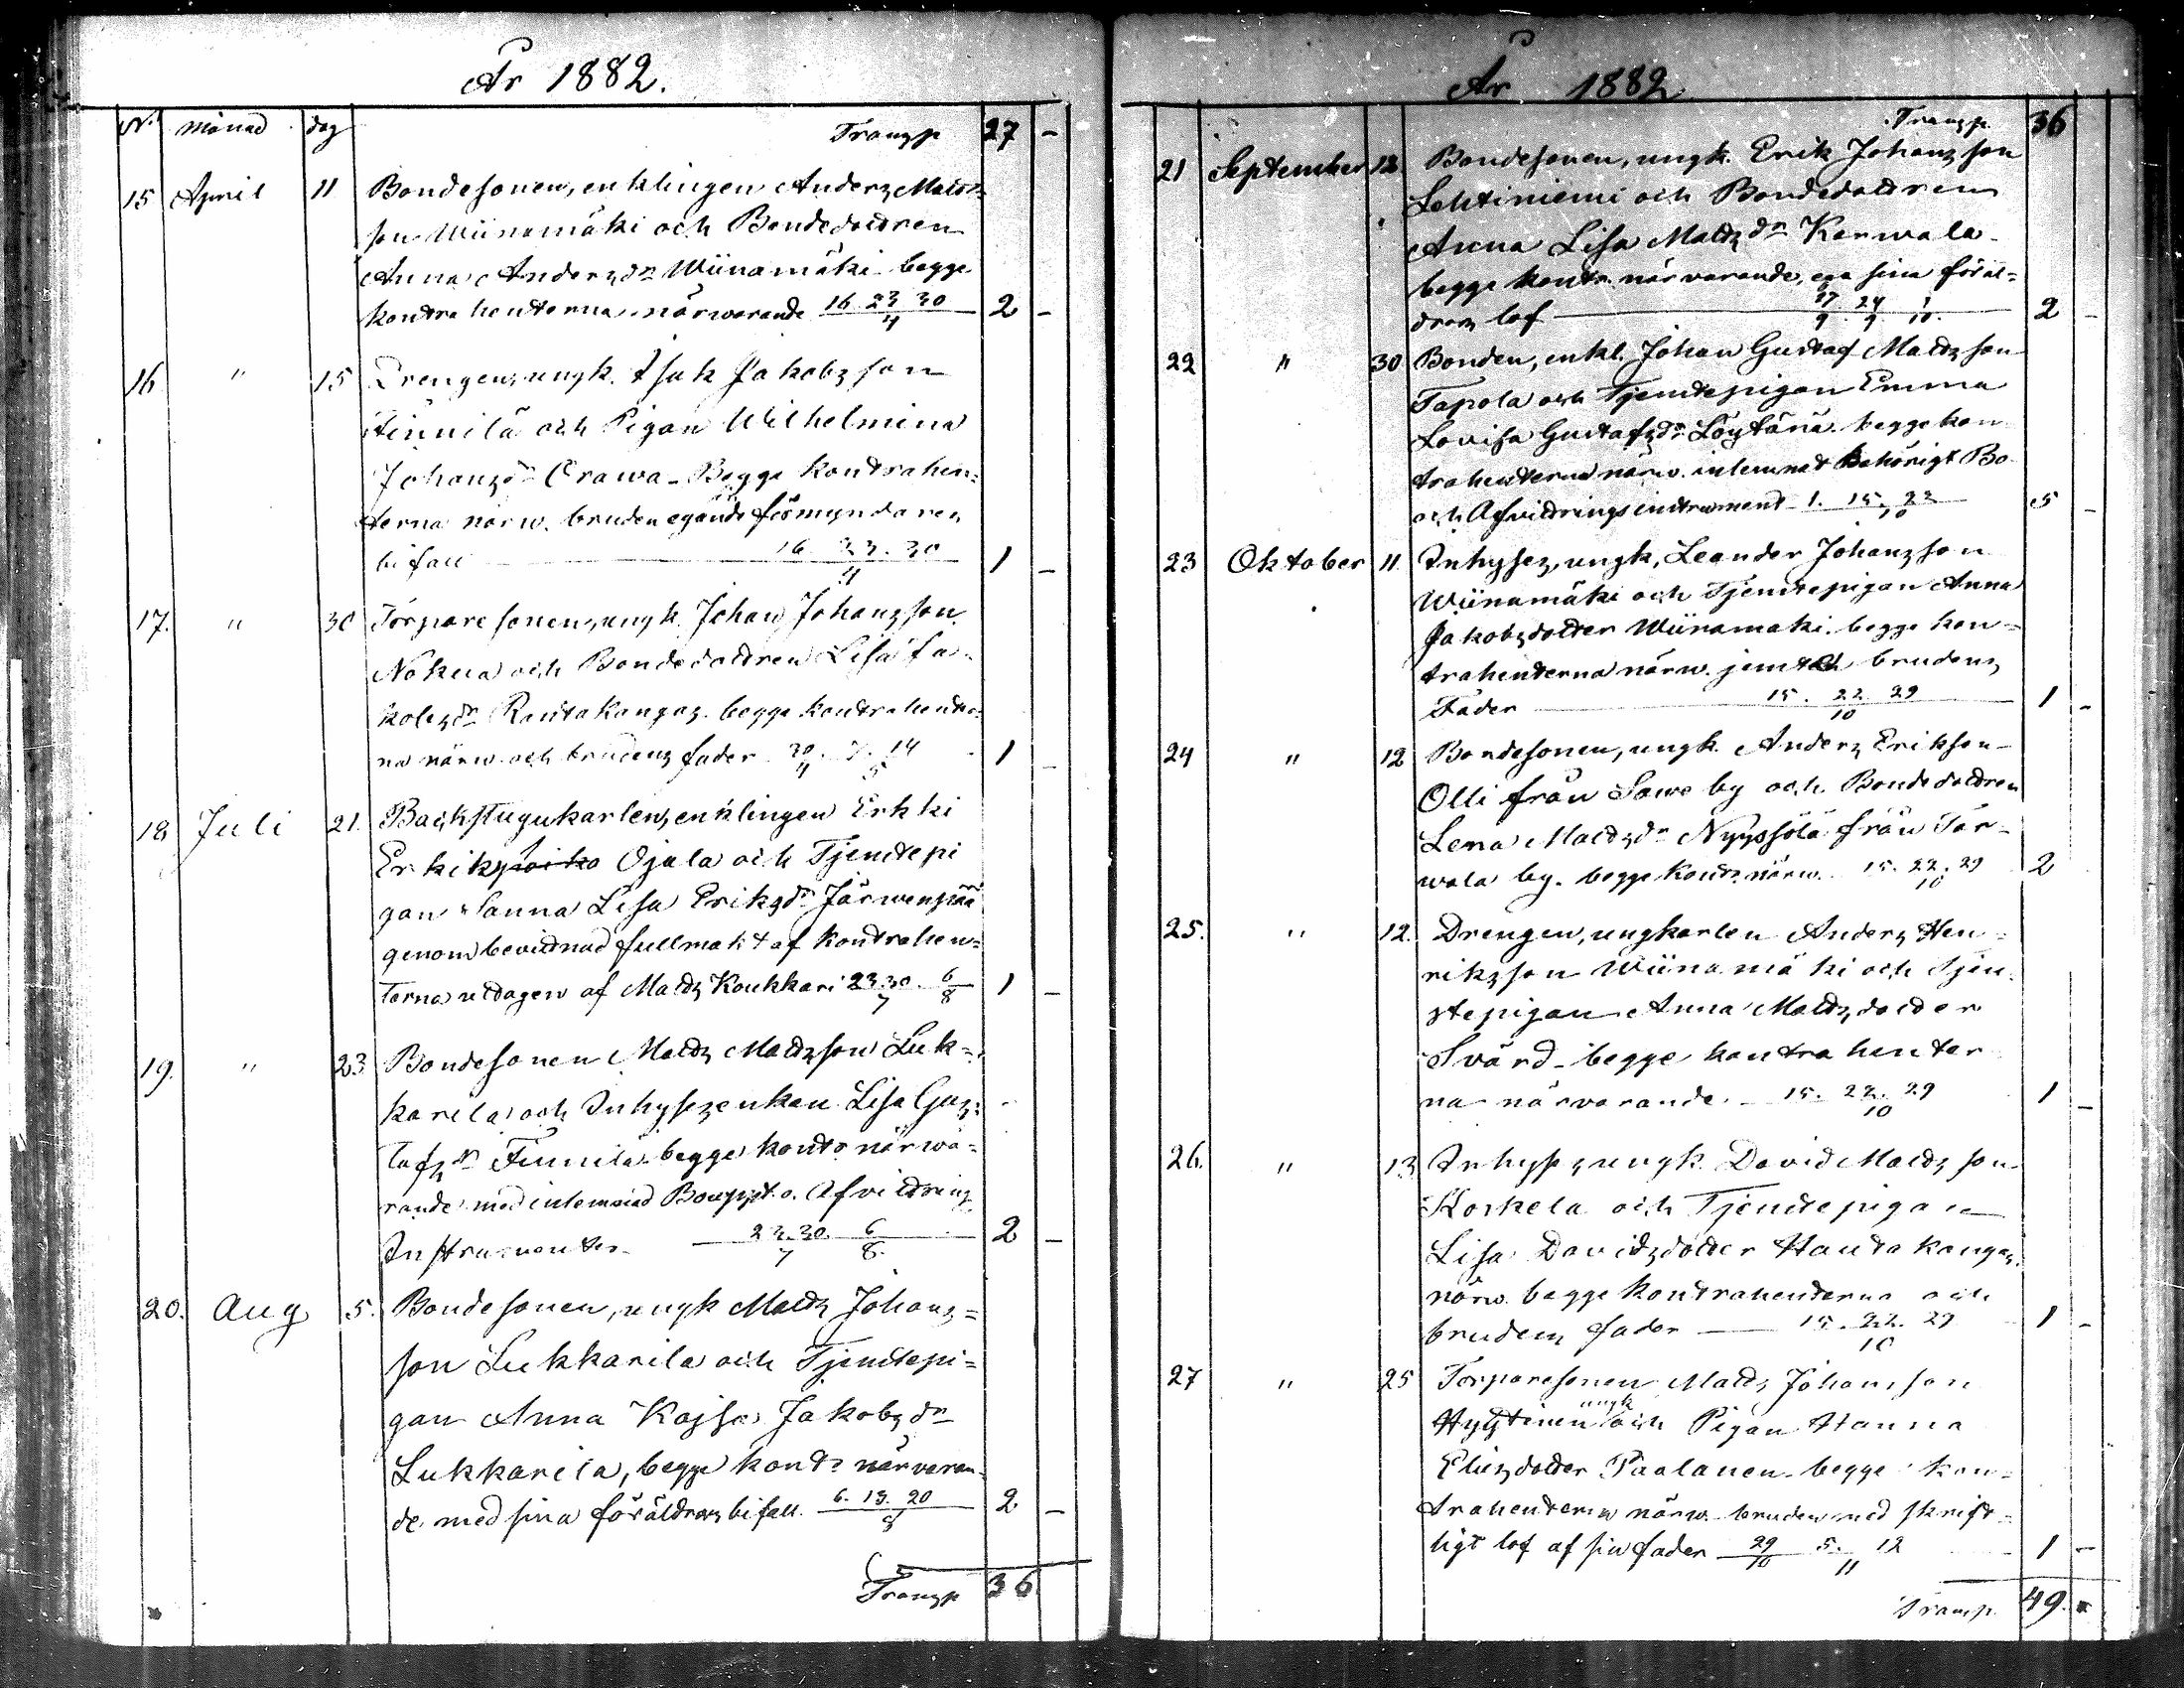 År 1882.
No månad dag Transp 27 –
15 April 11 Bondesonen, enklingen Anders Matts
son Wiinamäki och Bondedottren
Anna Andersdr Wiinamäki begge
kontrahenterna närvarande 16. 23 30/4 2 –
16 " 15 Drengen, ungk. Isak Jakobsson
och Pigan Wilhelmina
Johansdr Orawa – Begge kontrahen=
terna närw. bruden egande förmyndares
bifall 16. 23. 30/4 1 –
17. " 30 Torparesonen, ungk. Johan Johansson
Nokua och Bondedottren Lisa Ja=
kobsdr Rautakangas. begge kontrahenter=
na närw. och brudens fader 30/4 7. 14/5 1 –
18 Juli 21. Backstugukarlen, enklingen Erkki
Erkiks Ojala och Tjenstepi
gan Sanna Lisa Eriksdr Järwenpää
genom bevittnad fullmakt af kontrahen=
terna uttagen af Matts Koukkari 23. 30/7 6/8 1 –
19. " 23 Bondesonen Matts Mattsson Luk=
karila och Inhysesenkan Lisa Gus=
tafsdr Finnilä begge kontr närwa=
rande med intemnad Bouppt. o. Afvittrings
Instrumenter 23. 30/7 6/8 2 –
20. Aug 5. Bondesonen, ungk Matts Johans=
son Lukkarila och Tjenstepi=
gan Anna Kajsa Jakobsdr
Lukkarila, begge kontr närvaran=
de med sina föräldrars bifall. 6. 13. 20/8 2 –
Transp 36
År 1882
Transp. 36
21 September 12 Bondesonen, ungk. Erik Johansson
Lehtiniemi och Bondedottren
Anna Lisa Mattsdr Karwala
begge kontr. närvarande, ega sina föräl=
drars lof 17/9 24/9 1/10 2 –
22 " 30 Bonden, enkl. Johan Gustaf Mattsson
Tapola och Tjenstepigan Emma
Lovisa Gustafsdr Löytänä. begge kon
trahenterna närw. intemnat Behörigt Bo
och Afvittringsinstrument 1. 15. 22/10 5 –
23 Oktober 11. Inhyses, ungk, Leander Johansson
Wiinamäki och Tjenstepigan Anna
Jakobsdotter Wiinamäki. begge kon=
trahenterna närw. jemte brudens
Fader 15. 22. 29/10 1 –
24 " 12 Bondesonen, ungk. Anders Erikson
Olli från Sawe by och Bondedottren
Lena Mattsdr Nyyssölä från Tar=
wala by. begge kontr. närw. 15. 22. 29/10 2
25. " 12. Drengen, ungkarlen Anders Hen=
riksson Wiinamäki och Tjen
stepigan Anna Mattsdotter
Svärd – begge kontrahenter
na närvarande 15. 22. 29/10 1 –
26. " 13 Inhyses, ungk. David Mattsson
Korkela och Tjenstepigan
Lisa Davidsdotter Hautakangas.
närw. begge kontrahenterna och
brudens fader 15. 22. 29/10 1 –
27 " 25 Torparesonen Matts Johansson
Hyytinen ungk och Pigan Hanna
Eliesdotter Paalanen – begge kon=
trahenterna närw. bruden med skrift=
ligt lof af sin fader 29/10 5. 12/11 1 –
Transp. 49. –